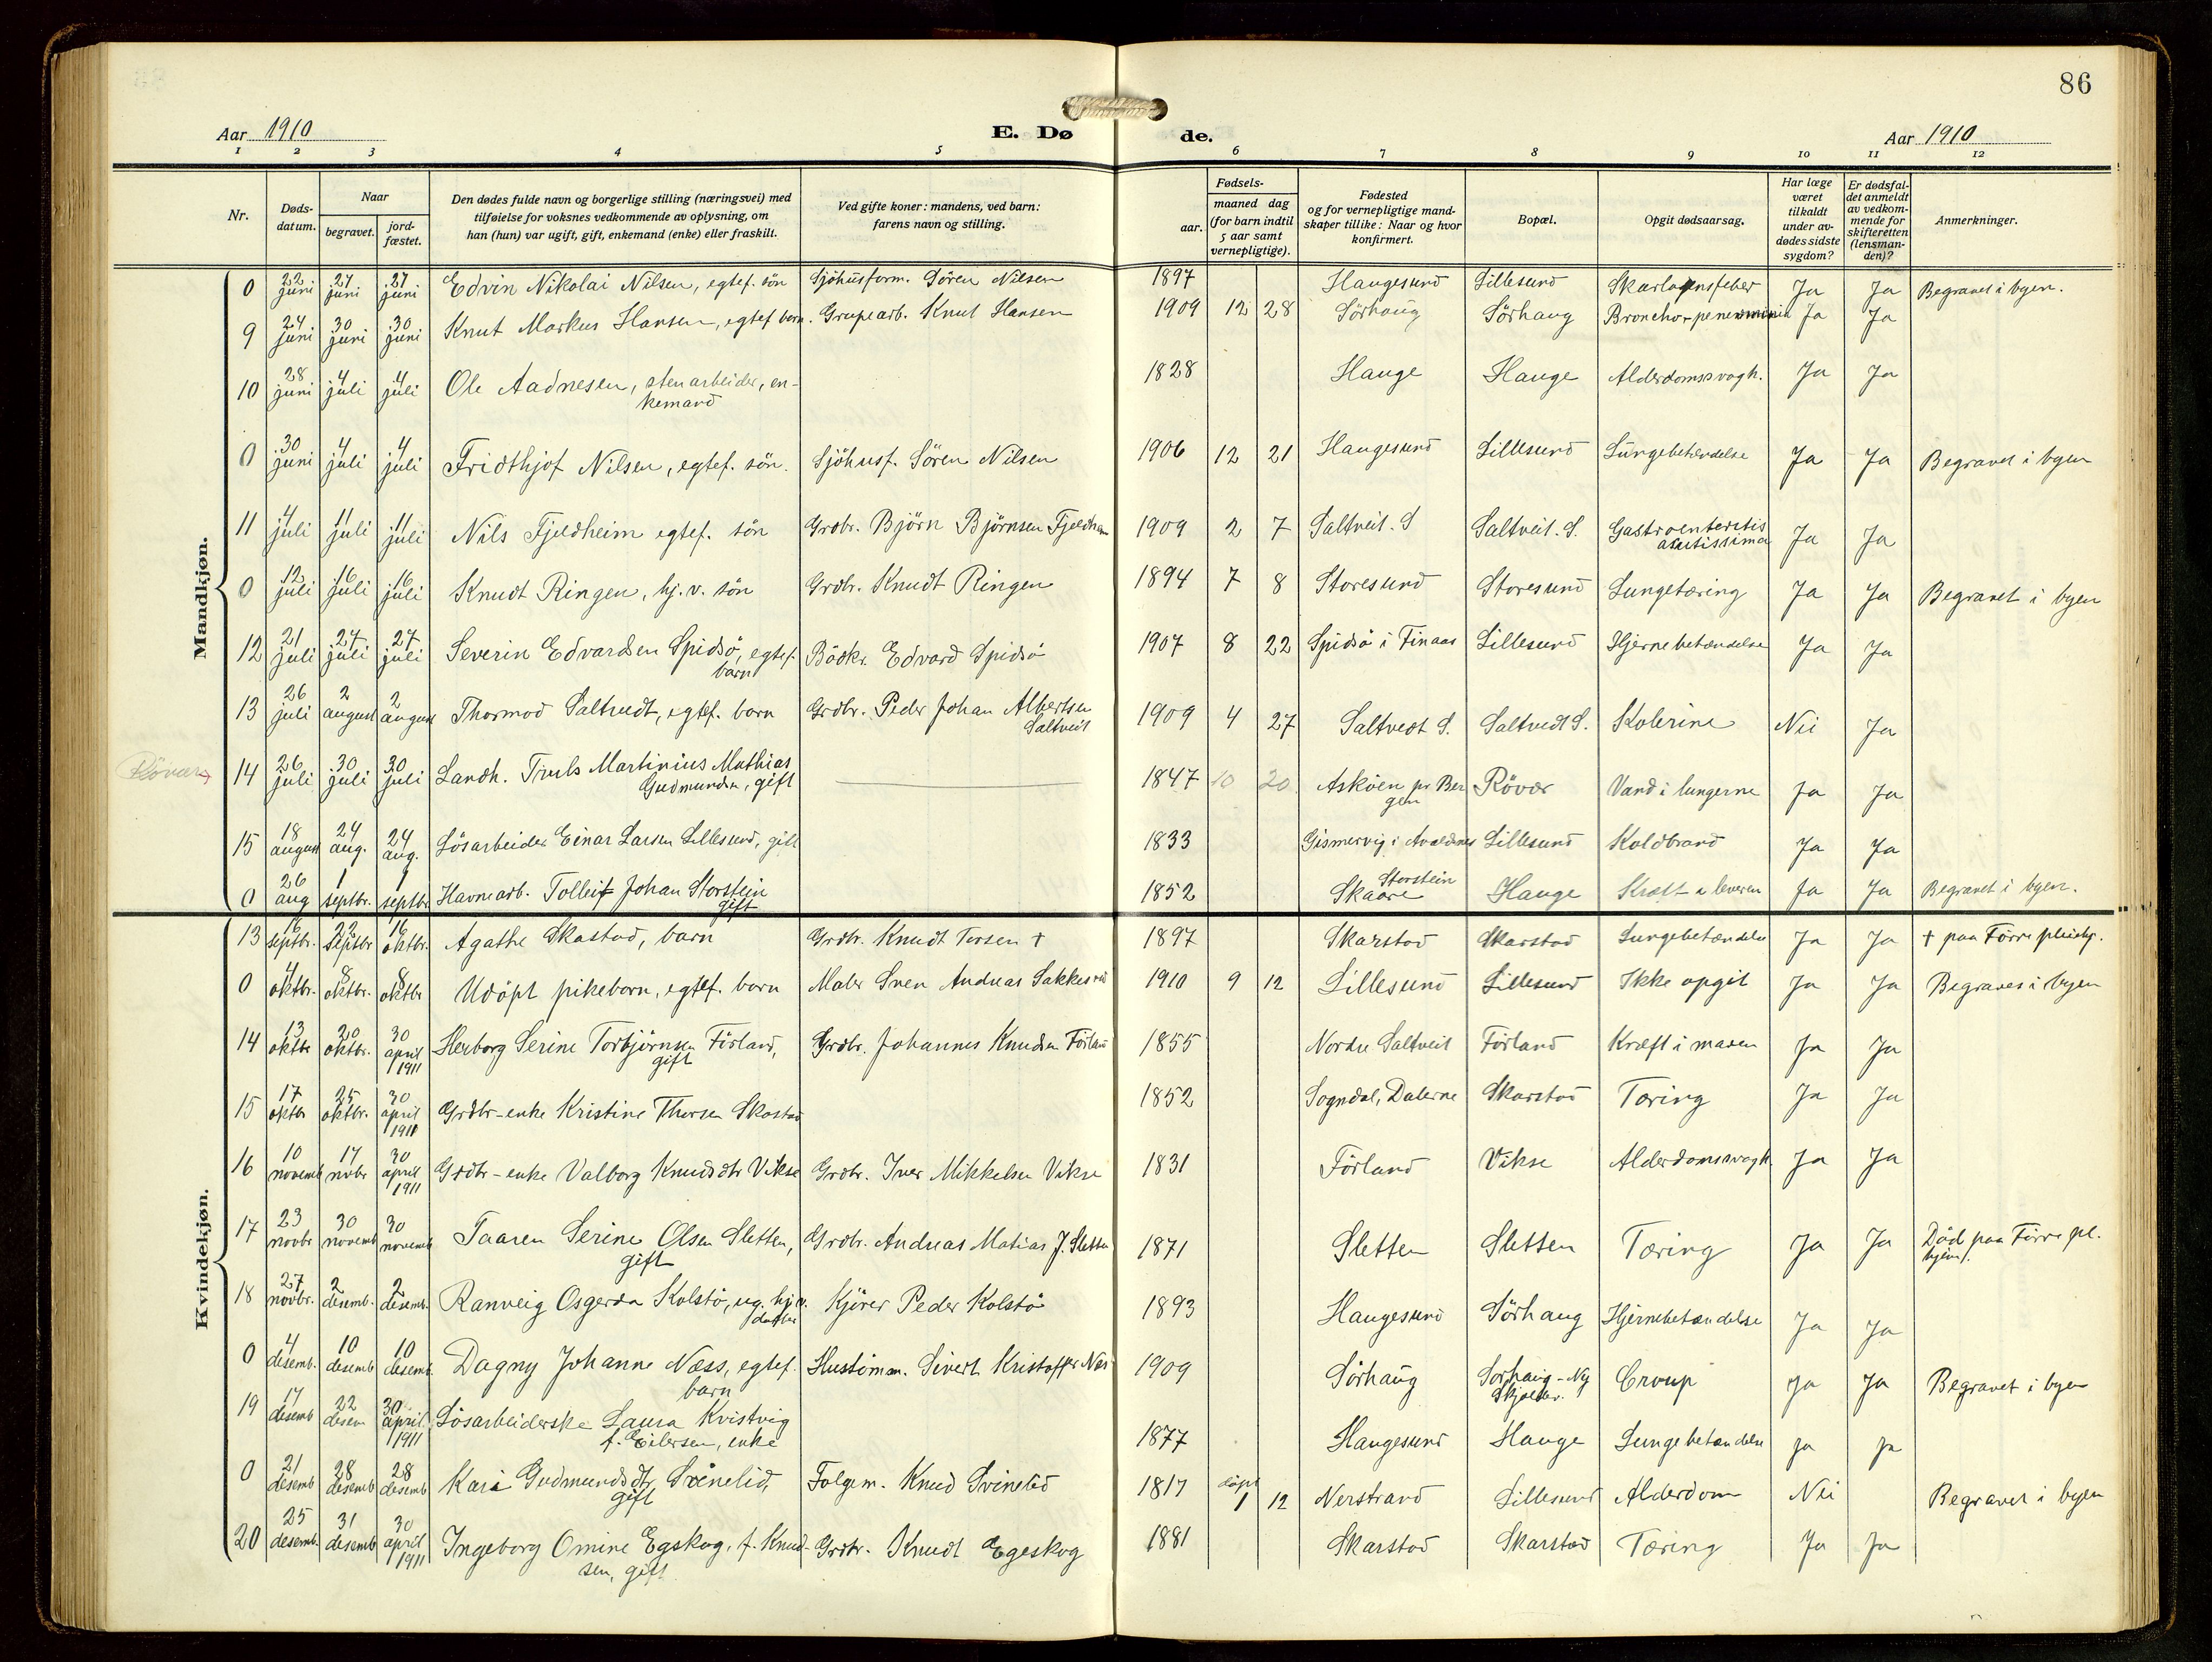 86
Aar 1910
E. Dø
de.
Aar 1910
1 2 3 4 5 6 7 8 9 10 11 12
Nr.
Døds-
datum.
Naar
begravet.
jord-
fæstet.
Den dødes fulde navn og borgerlige stilling (næringsvei) med
tilføielse for voksnes vedkommende av oplysning, om
han (hun) var ugift, gift, enkemand (enke) eller fraskilt.
Ved gifte koner: mandens, ved barn:
farens navn og stilling.
aar.
Fødsels-
maaned dag
(for barn indtil
5 aar samt
vernepligtige).
Fødested
og for vernepligtige mand-
skaper tillike: Naar og hvor
konfirmert.
Bopæl.
Opgit dødsaarsag.
Har læge
været
tilkaldt
under av-
dødes sidste
sygdom?
Er dødsfal-
det anmeldt
av vedkom-
mende for
skifteretten
(lensman-
den)?
Anmerkninger.
Mandkjøn.
0 22 juni 27 juni 27 juni Edvin Nikolai Nilsen, egtef. sön Sjöhusform. Sören Nilsen 1897 Haugesund Lillesund Skarlagensfeber Ja Ja Begravet i byen.
9 24 juni 30 juni 30 juni Knut Markus Hansen, egtef barn. Grupearb. Knut Hansen 1909 12 28 Sörhaug Sörhaug Ja Ja
10 28 juni 4 juli 4 juli Ole Aadnesen, stenarbeider, en-
kemand 1828 Hauge Hauge Alderdomssvagh. Ja Ja
0 30 juni 4 juli 4 juli Fridthjof Nilsen, egtef. sön. Sjöhusf. Sören Nilsen 1906 12 21 Haugesund Lillesund Lungebetændelse Ja Ja Begravet i byen
11 4 juli 11 juli 11 juli Nils Fjeldheim egtef. sön Grdbr. Björn Björnsen Fjeldheim 1909 2 7 Saltveit. S Saltveit. S. Gastroenteritis
acutissima Ja Ja
0 12 juli 16 juli 16 juli Knudt Ringen, hj. v. sön Grdbr. Knudt Ringen 1894 7 8 Storesund Storesund Lungetæring Ja Ja Begravet i byen
12 21 juli 27 juli 27 juli Severin Edvardsen Spidsö, egtef.
barn Bödkr. Edvard Spidsö 1907 8 22 Spidsö i Finaas Lillesund Hjernebetændelse Ja Ja
13 26 juli 2 august 2 august Thormod Saltvedt, egtef. barn Grdbr. Peder Johan Albertsen
Saltveit 1909 4 27 Saltvedt S. Saltvedt S. Kolerine Nei Ja
Rövær 14 26 juli 30 juli 30 juli Landh. Truls Martinius Mathias
Gudmundsen, gift 1847 10 20. Asköen pr Ber
gen Rövær Vand i lungerne Ja Ja
15 18 august 24 aug. 24 aug. Lösarbeider Einar Larsen Lillesund, gift 1833 Gismervig i Avaldsnes Lillesund Koldbrand Ja Ja
0 26 aug 1 septbr. 1 septbr. Havnearb. Tolleif Johan Storstein
gift 1852 Storstein
Skaare Hauge Kræft i leveren Ja Ja Begravet i byen.
Kvindekjøn.
13 16 septbr. 22 septbr 16 oktbr. Agathe Skastad, barn Grdbr. Knudt Torsen † 1897 Skarstad Skarstad Lungebetændelse Ja Ja † paa Förre pleiehj.
0 4 oktbr. 8 oktbr. 8 oktbr Udöpt pikebarn, egtef. barn Maler Sven Andreas 1910 9 12 Lillesund Lillesund Ikke opgit Ja Ja Begravet i byen
14 13 oktbr 20 oktbr. 30 april 1911 Herborg Serine Torbjörnsen Förland,
gift Grdbr. Johannes Knudsen Förland 1855 Nordre Saltveit Förland Kræft i maven Ja Ja
15 17 oktbr 25 oktbr. 30 april 1911 Grdbr-enke Kristine Thorsen Skastad 1852 Sogndal, Dalerne Skarstad Tæring Ja Ja
16 10 novemb 17 novbr 30 april 1911 Grdbr-enke Valborg Knudsdtr Vikse Grdbr. Iver Mikkelsen Vikse 1831 Förland Vikse Alderdomssvagh. Ja Ja
17 23 novbr 30 novemb 30 novemb Taaren Serine Olsen Sletten,
gift Grdbr. Andreas Matias J. Sletten 1871 Sletten Sletten Tæring Ja Ja Död paa Förre pl.
hjem.
18 27 novbr. 2 desemb. 2 desemb. Ranveig Osgerda Kolstö, ug. hj. v.
datter Kjörer Peder Kolstö 1893 Haugesund Sörhaug Hjernebetændelse Ja Ja
0 4 desemb. 10 desemb 10 desemb. Dagny Johanne Næss, egtef.
barn Hustömm. Sivert Kristoffer Næs 1909 Sörhaug Sörhaug - Ny
Skjolder. Croup Ja Ja Begravet i byen
19 17 desemb 22 desem 30 april 1911 Lösarbeiderske Laura Kvistvig
f. Eilersen, enke 1877 Haugesund Hauge Lungebetændelse Ja Ja
0 21 desemb 28 desemb 28 desemb Kari Gudmundsdtr. Svinelid,
gift Folgem. Knud Svinelid 1817 döpt
1 12 Nerstrand Lillesund Alderdom Nei Begravet i byen
20 25 desemb. 31 desemb 30 april 1911 Ingeborg Omine Egskog, f. Knud-
sen, gift Grdbr. Knudt Egeskog 1881 Skarstad Skarstad Tæring Ja Ja